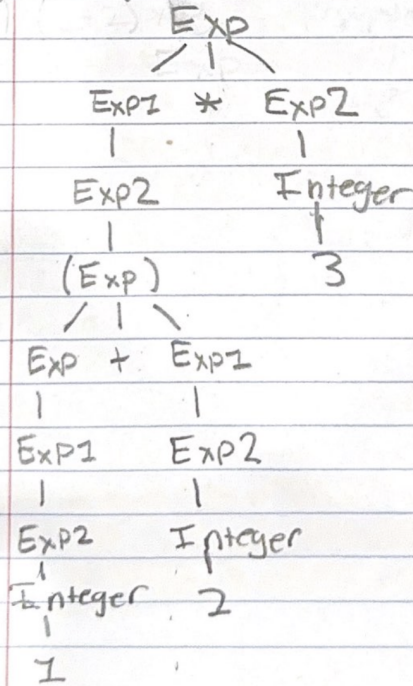 Exp
Exp1 * Exp2
Exp2 Integer
(Exp) 3
Exp + Exp1
Exp1 Exp2
Exp2 Integer
Integer 2
1